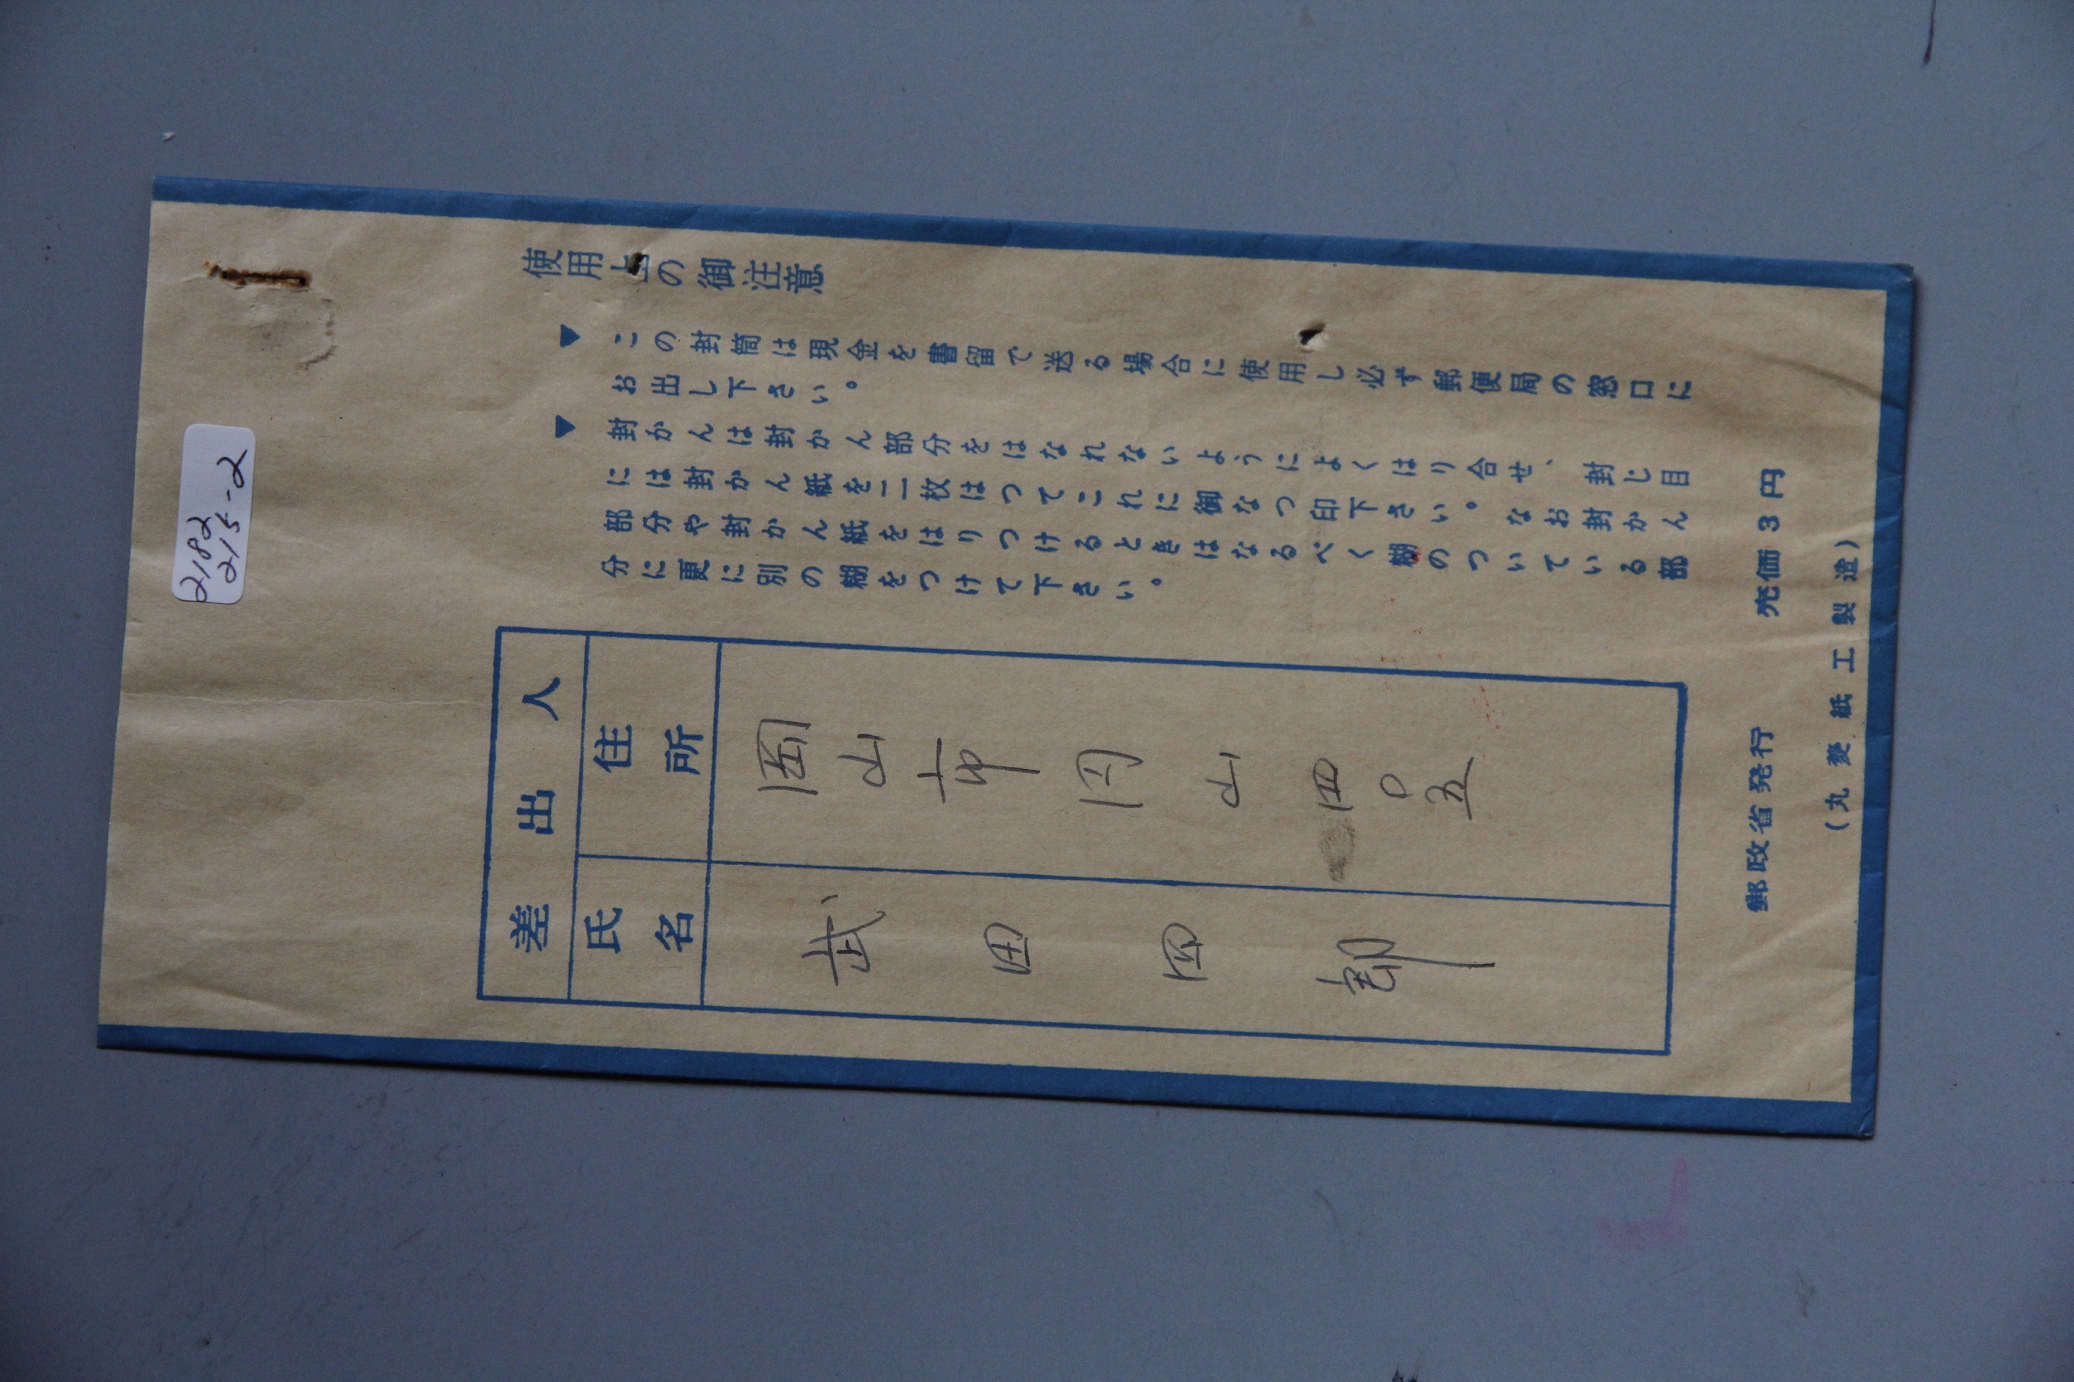 2182
215-2
使用上の御注意
▼ この封筒は現金を書留で送る場合に使用し必ず郵便局の窓口に
お出し下さい。
▼ 封かんは封かん部分をはなれないようによくはり合せ、封じ目
には封かん紙を二枚はつてこれに御なつ印下さい。なお封かん
部分や封かん紙をはりつけるときはなるべく糊のついている部
分に更に別の糊をつけて下さい。
差出人
住所
岡山市円山四〇五
氏名
武田四郎
郵政省発行 売価3円
(丸菱紙工製造)